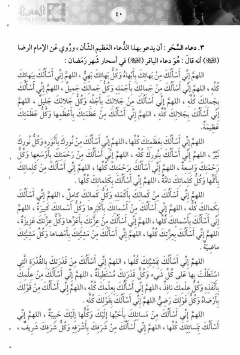 ٤٠
٣. دعاء السَّحَر : أن يدعو بهذا الدُّعاء العَظيم الشأن ، ورُوي عَن الإمام الرضا
أنه قال : هُوَ دعاء الباقر في أسحار شهر رَمَضان :
اللهمَّ إنّي أَسأَلُكَ مِنْ بَهائِكَ بِأَبهاهُ وَكُلُّ بَهائِكَ بَهِيٌّ ، اللهمَّ إنّي أَسأَلُكَ بِبَهائِكَ
كُلِّهِ ، اللهمَّ إنّي أَسأَلُكَ مِنْ جَمالِكَ بِأَجمَلِهِ وَكُلُّ جَمالِكَ جَميلٌ ، اللهمَّ إنّي أَسأَلُكَ
بِجَمالِكَ كُلِّهِ ، اللهمَّ إنّي أَسأَلُكَ مِنْ جَلالِكَ بِأَجَلِّهِ وَكُلُّ جَلالِكَ جَليلٌ ، اللهمَّ
إنّي أَسأَلُكَ بِجَلالِكَ كُلِّهِ ، اللهمَّ إنّي أَسأَلُكَ مِنْ عَظَمَتِكَ بِأَعظَمِها وَكُلُّ عَظَمَتِكَ
عَظيمَةٌ
اللهمَّ إنّي أَسأَلُكَ بِعَظَمَتِكَ كُلِّها ، اللهمَّ إنّي أَسأَلُكَ مِنْ نُورِكَ بِأَنوَرِهِ وَكُلُّ نُورِكَ
نَيِّرٌ ، اللهمَّ إنّي أَسأَلُكَ بِنُورِكَ كُلِّهِ ، اللهمَّ إنّي أَسأَلُكَ مِنْ رَحمَتِكَ بِأَوسَعِها وَكُلُّ
رَحمَتِكَ واسِعَةٌ ، اللهمَّ إنّي أَسأَلُكَ بِرَحمَتِكَ كُلِّها ، اللهمَّ إنّي أَسأَلُكَ مِنْ كَلِماتِكَ
بِأَتَمِّها وَكُلُّ كَلِماتِكَ تامَّةٌ ، اللهمَّ إنّي أَسأَلُكَ بِكَلِماتِكَ كُلِّها .
اللهمَّ إنّي أَسأَلُكَ مِنْ كَمالِكَ بِأَكمَلِهِ وَكُلُّ كَمالِكَ كامِلٌ ، اللهمَّ إنّي أَسأَلُكَ
بِكَمالِكَ كُلِّهِ ، اللهمَّ إنّي أَسأَلُكَ مِنْ أَسمائِكَ بِأَكبَرِها وَكُلُّ أَسمائِكَ كَبيرَةٌ ، اللهمَّ
إنّي أَسأَلُكَ بِأَسمائِكَ كُلِّها ، اللهمَّ إنّي أَسأَلُكَ مِنْ عِزَّتِكَ بِأَعَزِّها وَكُلُّ عِزَّتِكَ عَزيزَةٌ ،
اللهمَّ إنّي أَسأَلُكَ بِعِزَّتِكَ كُلِّها ، اللهمَّ إنّي أَسأَلُكَ مِنْ مَشِيَّتِكَ بِأَمضاها وَكُلُّ مَشِيَّتِكَ
ماضِيَةٌ .
اللهمَّ إنّي أَسأَلُكَ بِمَشِيَّتِكَ كُلِّها ، اللهمَّ إنّي أَسأَلُكَ مِنْ قُدرَتِكَ بِالقُدرَةِ الَّتي
استَطَلتَ بِها عَلى كُلِّ شَيءٍ ، وَكُلُّ قُدرَتِكَ مُستَطيلَةٌ ، اللهمَّ إنّي أَسأَلُكَ بِقُدرَتِكَ
كُلِّها ، اللهمَّ إنّي أَسأَلُكَ مِنْ عِلمِكَ بِأَنفَذِهِ وَكُلُّ عِلمِكَ نافِذٌ ، اللهمَّ إنّي أَسأَلُكَ بِعِلمِكَ
كُلِّهِ ، اللهمَّ إنّي أَسأَلُكَ مِنْ قَولِكَ
بِأَرضاهُ وَكُلُّ قَولِكَ رَضِيٌّ اللهمَّ إنّي أَسأَلُكَ بِقَولِكَ كُلِّهِ .
اللهمَّ إنّي أَسأَلُكَ مِنْ مَسائِلِكَ بِأَحَبِّها إلَيكَ وَكُلُّها إلَيكَ حَبيبَةٌ ، اللهمَّ إنّي
أَسأَلُكَ بِمَسائِلِكَ كُلِّها ، اللهمَّ إنّي أَسأَلُكَ مِنْ شَرَفِكَ بِأَشرَفِهِ وَكُلُّ شَرَفِكَ شَريفٌ ،